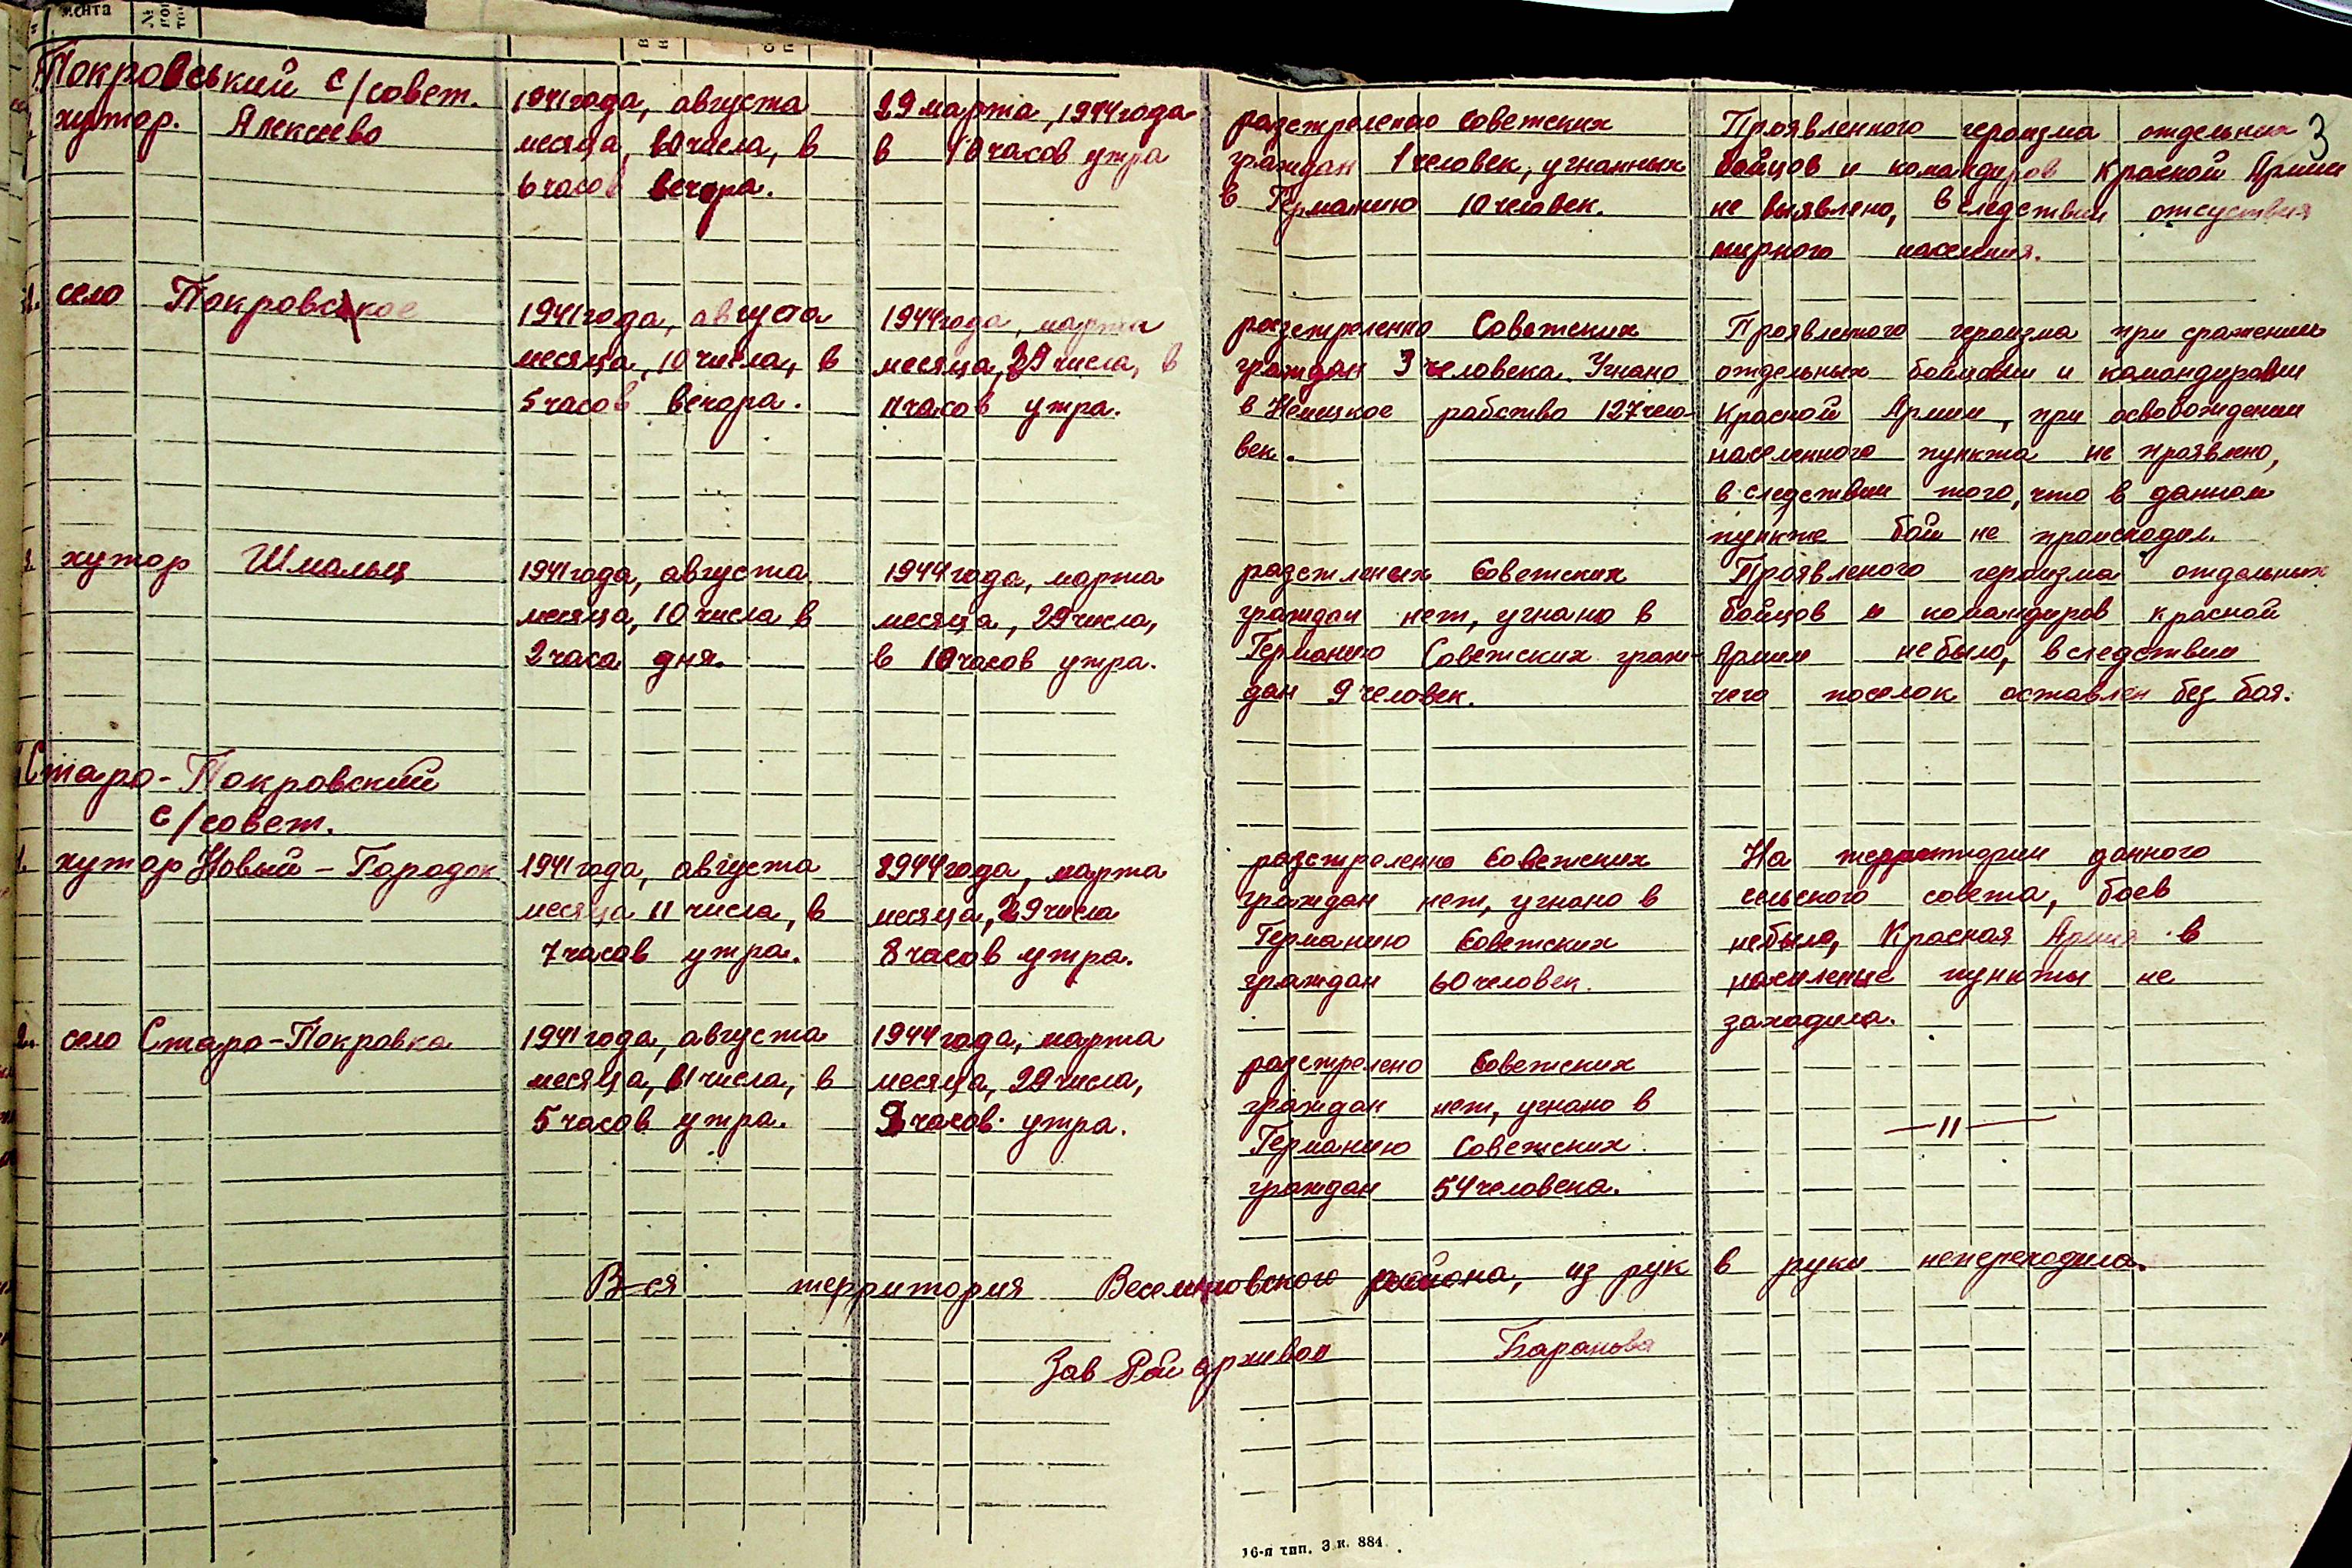 мента
3
Покровський с/совет.
хутор. Алексеево
1941 года, августа
месяца, 10 числа, в
6 часов вечора.
29 марта, 1944 года
в 10 часов утра
разстреленно Советских
граждан 1 человек, угнанных
в Германию 10 человек.
Проявленного героизма отдельных
бойцов и командиров Красной Армии
не выявлено, в следствии отсуствия
мирного населения.
2. село Покровское
1941 года, августа
месяца, 10 числа, в
5 часов вечора.
1944 года, марта
месяца, 29 числа, в
11 часов утра.
разстреленно Советских
граждан 3 человека. Угнано
в Немецкое рабство 127 чело-
век.
Проявленного героизма при сражении
отдельных бойцами и командирами
Красной Армии, при освобождении
населенного пункта не проявлено,
в следствии того, что в данном
пункте бой не происходил.
3. хутор Шмальц
1941 года, августа
месяца, 10 числа в
2 часа дня.
1944 года, марта
месяца, 29 числа,
в 10 часов утра.
разстленых Советских
граждан нет, угнано в
Германию Советских граж-
дан 9 человек.
Проявленого героизма отдельных
бойцов и командиров красной
Армии небыло, вследствии
чего поселок оставлен без боя.
Старо-Покровский
с/совет.
1. хутор Новый - Городок
1941 года, августа
месяца 11 числа, в
7 часов утра.
1944 года, марта
месяца, 29 числа
8 часов утра.
разстреленно Советских
граждан нет, угнано в
Германию Советских
граждан 60 человек.
На территории данного
сельского совета, боев
небыло, Красная Армия в
населеные пункты не
заходила.
2. село Старо-Покровка
1941 года, августа
месяца, 11 числа, в
5 часов утра.
1944 года, марта
месяца, 29 числа,
9 часов утра.
разстрелено Советских
граждан нет, угнано в
Германию Советских
граждан 54 человека.
—11—
Вся территория Веселиновского района, из рук в руки непереходила.
Зав Райархивом Баранова
16-я тип. З к. 884.